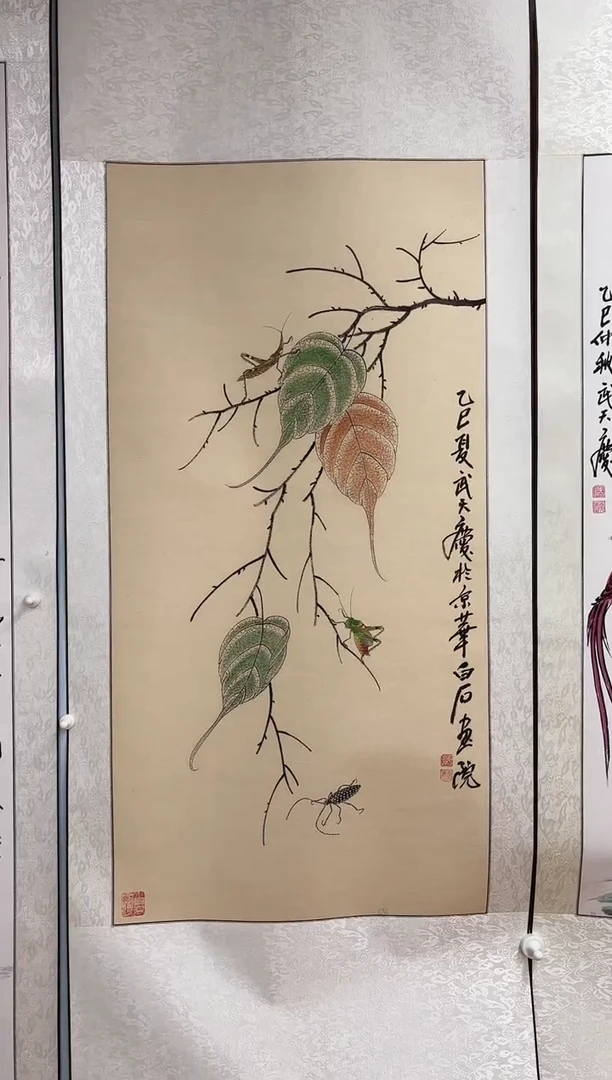 乙巳夏武天慶於京華白石画院
乙巳仲秋武天慶